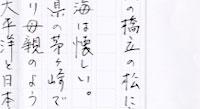 の橋立の松に
海は懐しい。
県の茅ヶ崎で
り母親のよう
大平洋と日本